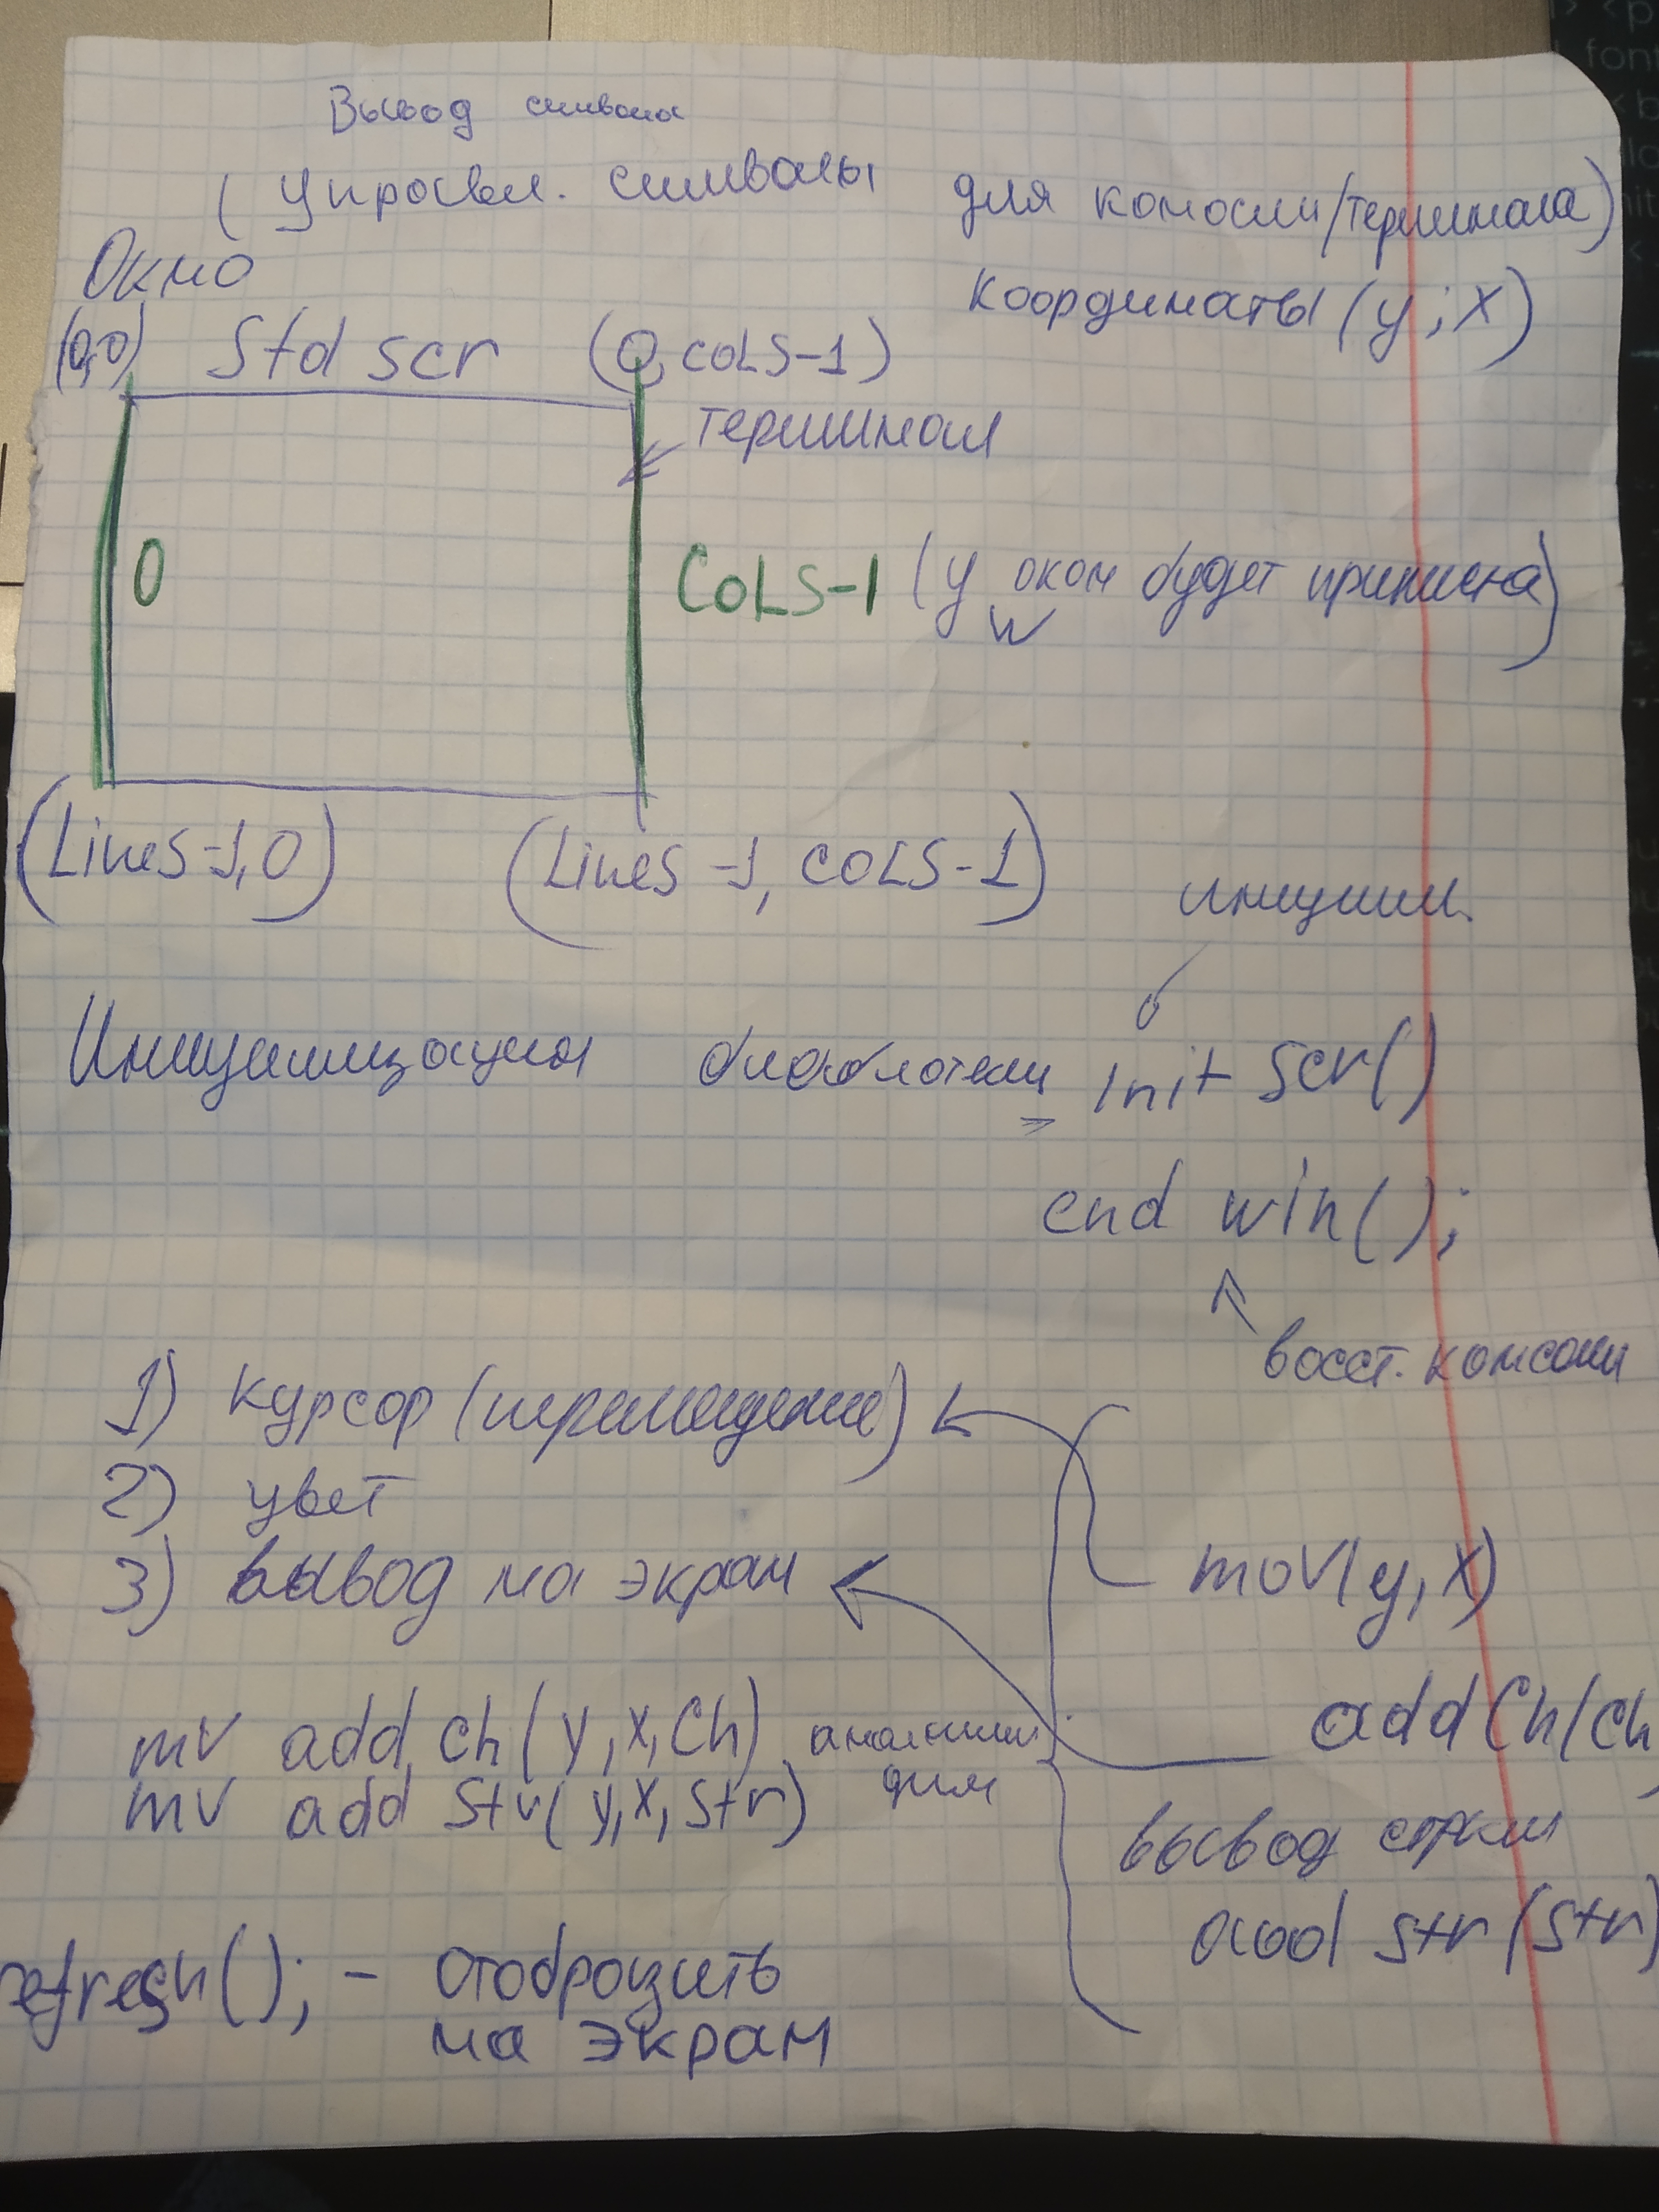 Вывод символа
(управл. символы для консоли/терминала)
Окно
координаты (y; x)
(0,0) Std scr (0, COLS-1)
терминал
0
COLS-1 (у окон будет приписка)
w
(Lines-1, 0) (Lines-1, COLS-1)
инициал.
Инициализация библиотеки = init scr()
end win();
восст. консоли
1) курсор (перемещение)
2) цвет
3) вывод на экран
mov(y, x)
add Ch(ch
mv add ch(y, x, Ch)
mv add Str(y, x, Str)
вывод строки
add str (Str)
refresh(); - отобразить
на экран